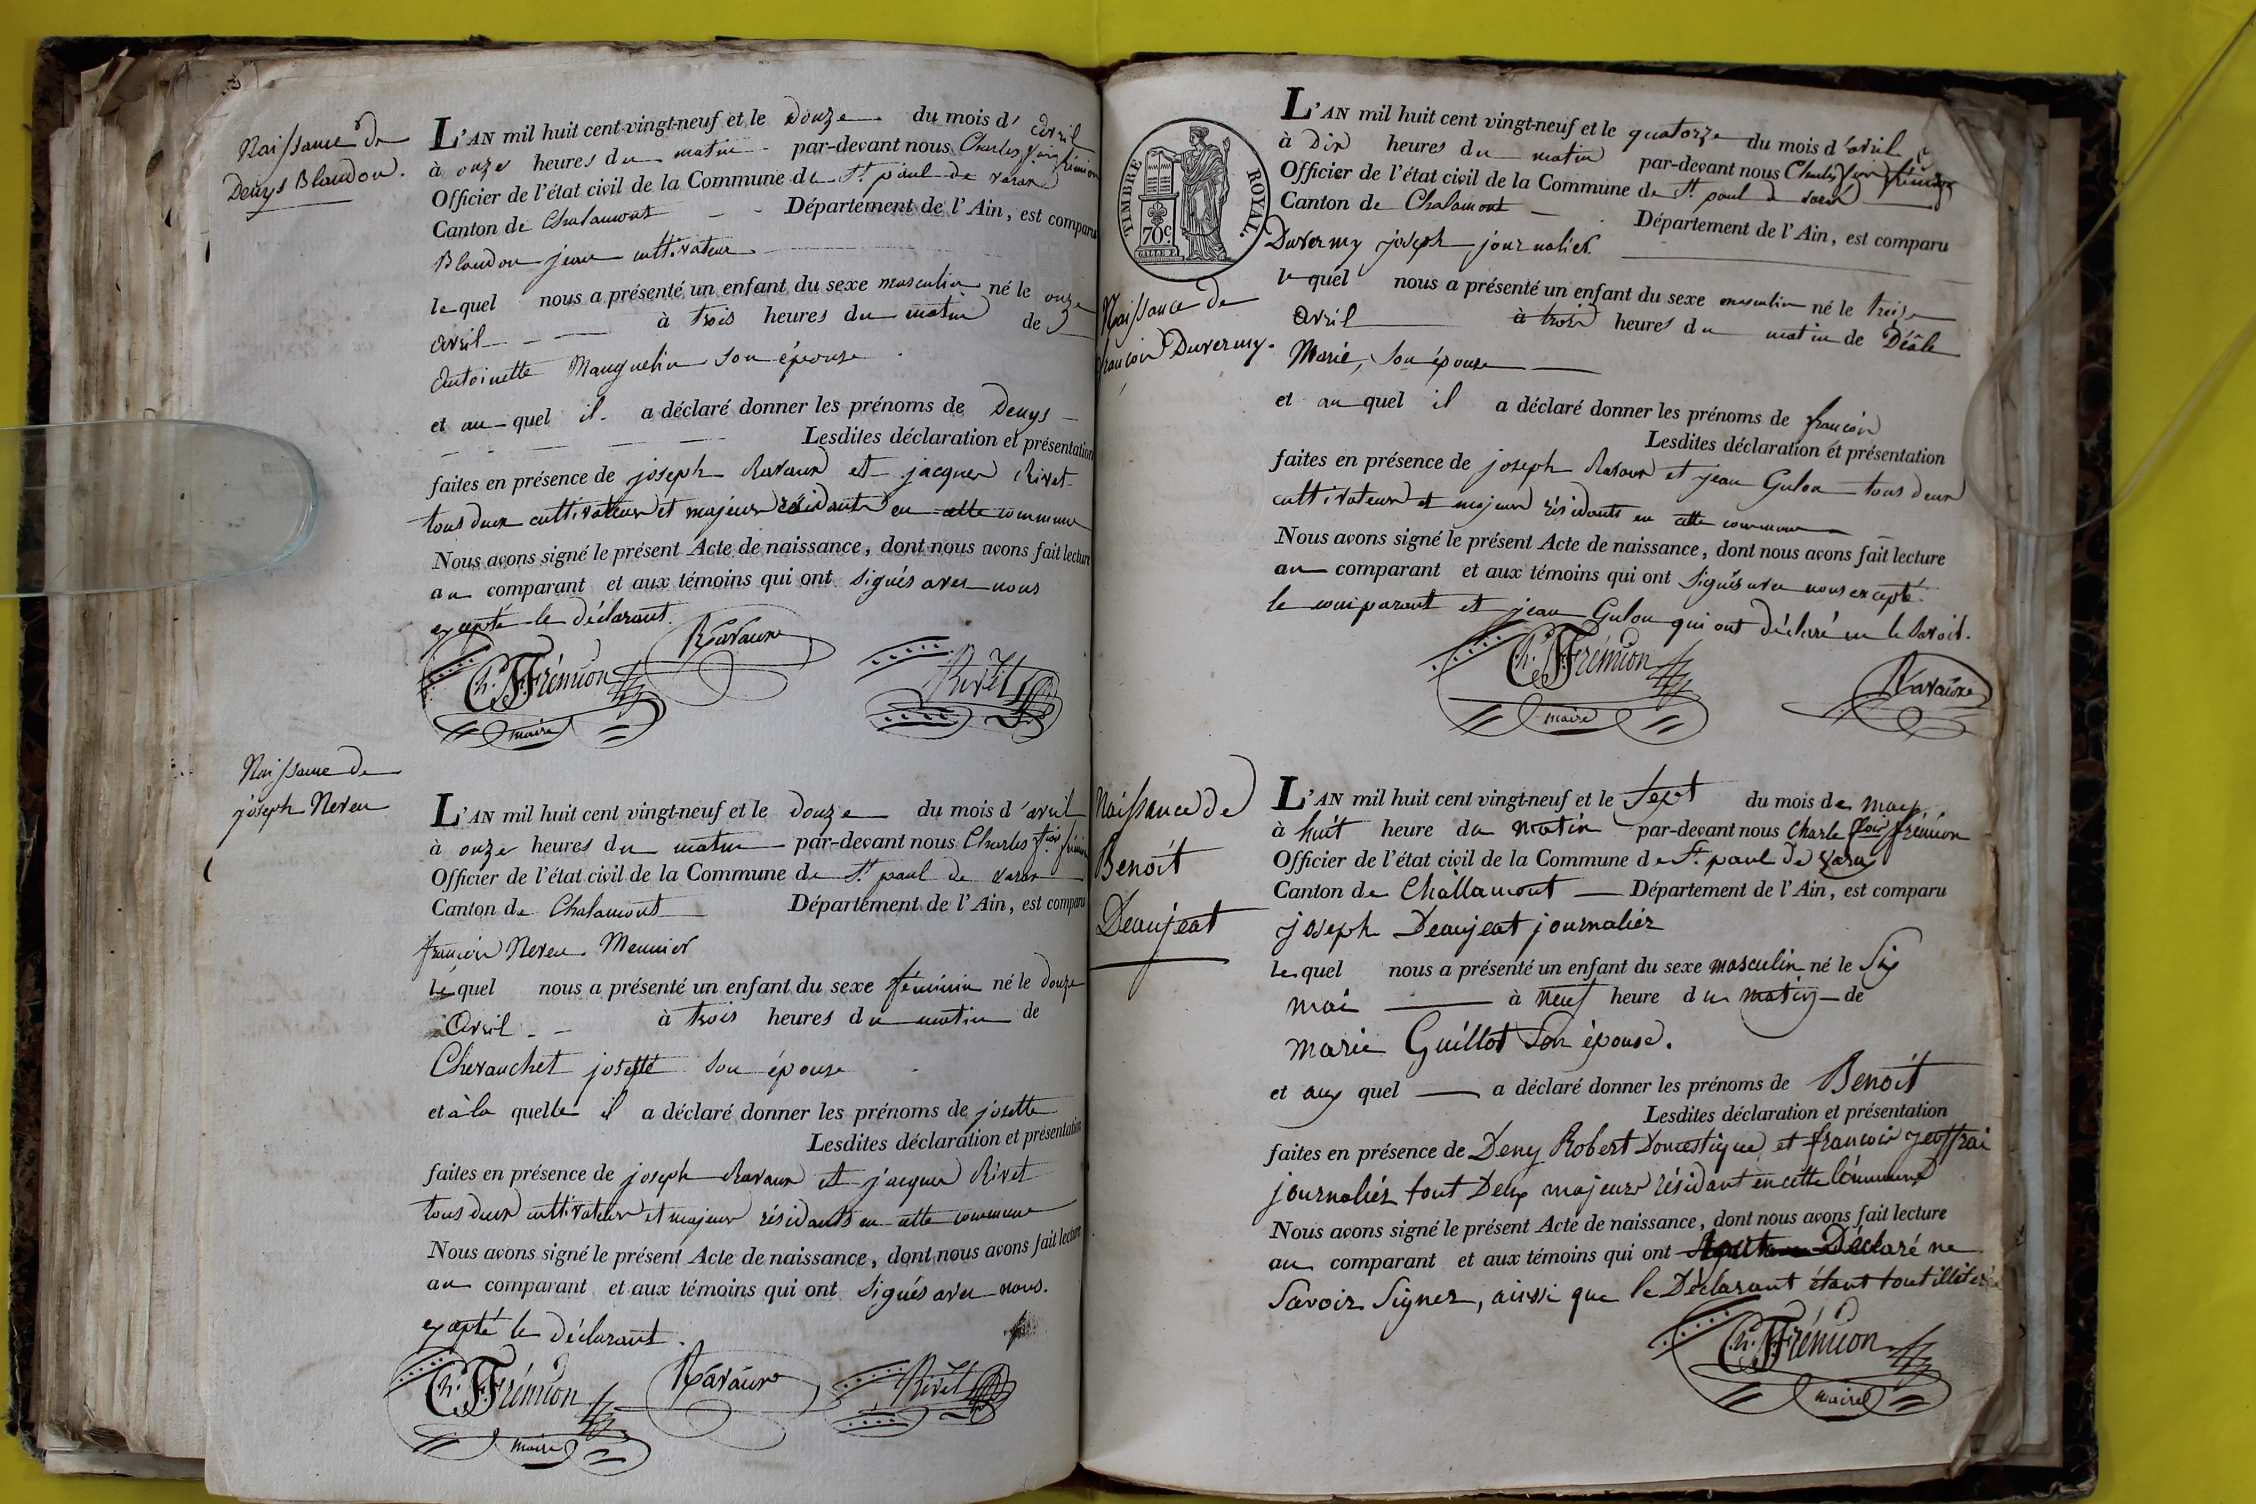 Naissance de
Denys Blandon.
L'AN mil huit cent vingt-neuf et le Douze du mois d' avril
à onze heures du matin par-devant nous Charles frémion
Officier de l'état civil de la Commune de St. paul de varax
Canton de Chalamont Département de l'Ain, est comparu
Blandon jean cultivateur
lequel nous a présenté un enfant du sexe masculin né le onze
avril à trois heures du matin de
Antoinette Manguelin son épouse
et au quel il a déclaré donner les prénoms de Denys
Lesdites déclaration et présentation
faites en présence de joseph Ravaux et jacques Rivet
tous deux cultivateurs et majeurs résidants en cette commune
Nous avons signé le présent Acte de naissance, dont nous avons fait lecture
au comparant et aux témoins qui ont signés avec nous
excepté le déclarant.
Ch. Frémion Ravaux Rivet
maire
Naissance de
joseph Neveu
L'AN mil huit cent vingt-neuf et le douze du mois d'avril
à onze heures du matin par-devant nous Charles frémion
Officier de l'état civil de la Commune de St. paul de varax
Canton de Chalamont Département de l'Ain, est comparu
françois Neveu Meunier
lequel nous a présenté un enfant du sexe féminin né le douze
avril à trois heures du matin de
Chevauchet josette son épouse
et à la quelle il a déclaré donner les prénoms de josette
Lesdites déclaration et présentation
faites en présence de joseph Ravaux et jacques Rivet
tous deux cultivateurs et majeurs résidants en cette commune
Nous avons signé le présent Acte de naissance, dont nous avons fait lecture
au comparant et aux témoins qui ont signés avec nous.
excepté le déclarant.
Ch. Frémion Ravaux Rivet
maire
TIMBRE ROYAL.
70c
Naissance de
françois Duvermy.
L'AN mil huit cent vingt-neuf et le quatorze du mois d'avril
à Dix heures du matin par-devant nous Charles frémion
Officier de l'état civil de la Commune de St. paul de varax
Canton de Chalamont Département de l'Ain, est comparu
Duvermy joseph journalier
le quel nous a présenté un enfant du sexe masculin né le treize
avril à trois heures du matin de Déâle
Marie, son épouse
et au quel il a déclaré donner les prénoms de françois
Lesdites déclaration et présentation
faites en présence de joseph Ravaux et jean Gulon tous deux
cultivateurs et majeurs résidants en cette commune
Nous avons signé le présent Acte de naissance, dont nous avons fait lecture
au comparant et aux témoins qui ont signés avec nous excepté
le comparant et jean Gulon qui ont déclaré ne le savoir.
Ch. Frémion Ravaux
maire
Naissance de
Benoit
Deaujeat
L'AN mil huit cent vingt-neuf et le Sept du mois de may
à huit heure du matin par-devant nous Charle frémion
Officier de l'état civil de la Commune de St. paul de varax
Canton de Challamont Département de l'Ain, est comparu
joseph Deaujeat journaliér
lequel nous a présenté un enfant du sexe masculin né le Six
mai à neuf heure du matin de
marie Guillot Son épouse.
et aux quel a déclaré donner les prénoms de Benoit
Lesdites déclaration et présentation
faites en présence de Deny Robert Domestique et françois jeoffrai
journaliér tout Deux majeurs résidant en cette Commune
Nous avons signé le présent Acte de naissance, dont nous avons fait lecture
au comparant et aux témoins qui ont Déclaré ne
Savoir Signer, ainsi que le Déclarant étant tout illiteré
Ch. Frémion
maire